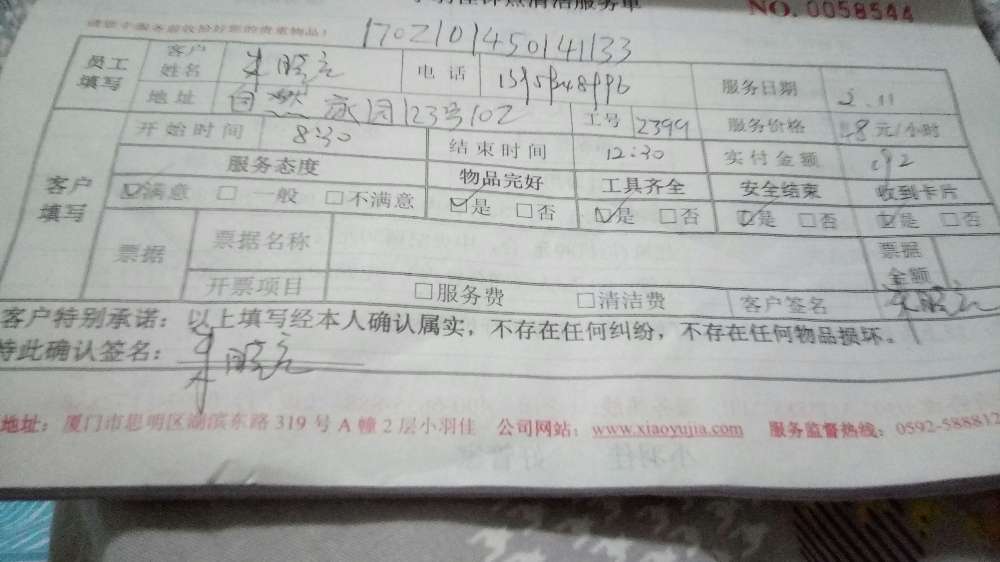 小羽佳钟点清洁服务单 NO. 0058544
1702101450141133
员工填写 客户姓名 电话 服务日期 2.11
地址 123号102 工号 2399 服务价格 48元/小时
开始时间 8:30 结束时间 12:30 实付金额 192
客户填写 服务态度 物品完好 工具齐全 安全结束 收到卡片
☑满意 □一般 □不满意 ☑是 □否 ☑是 □否 ☑是 □否 ☑是 □否
票据 票据名称 票据金额
开票项目 □服务费 □清洁费 客户签名
客户特别承诺：以上填写经本人确认属实，不存在任何纠纷，不存在任何物品损坏。
特此确认签名：
地址：厦门市思明区湖滨东路319号A幢2层小羽佳 公司网站：www.xiaoyujia.com 服务监督热线：0592-588812